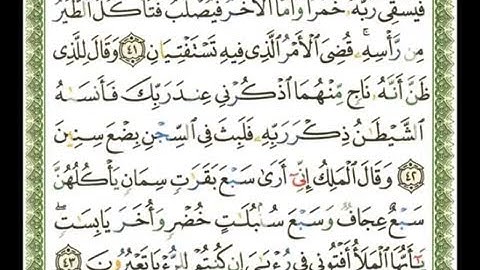 فَيَسْقِى رَبَّهُۥ خَمْرًا وَأَمَّا ٱلْأَخَرُ فَيُصْلَبُ فَتَأْكُلُ ٱلطَّيْرُ
مِن رَّأْسِهِۦ ۚ قُضِىَ ٱلْأَمْرُ ٱلَّذِى فِيهِ تَسْتَفْتِيَانِ ٤١ وَقَالَ لِلَّذِى
ظَنَّ أَنَّهُۥ نَاجٍ مِّنْهُمَا ٱذْكُرْنِى عِندَ رَبِّكَ فَأَنسَىٰهُ
ٱلشَّيْطَٰنُ ذِكْرَ رَبِّهِۦ فَلَبِثَ فِى ٱلسِّجْنِ بِضْعَ سِنِينَ
٤٢ وَقَالَ ٱلْمَلِكُ إِنِّىٓ أَرَىٰ سَبْعَ بَقَرَٰتٍ سِمَانٍ يَأْكُلُهُنَّ
سَبْعٌ عِجَافٌ وَسَبْعَ سُنۢبُلَٰتٍ خُضْرٍ وَأُخَرَ يَابِسَٰتٍ ۖ
يَٰٓأَيُّهَا ٱلْمَلَأُ أَفْتُونِى فِى رُءْيَٰىَ إِن كُنتُمْ لِلرُّءْيَا تَعْبُرُونَ ٤٣